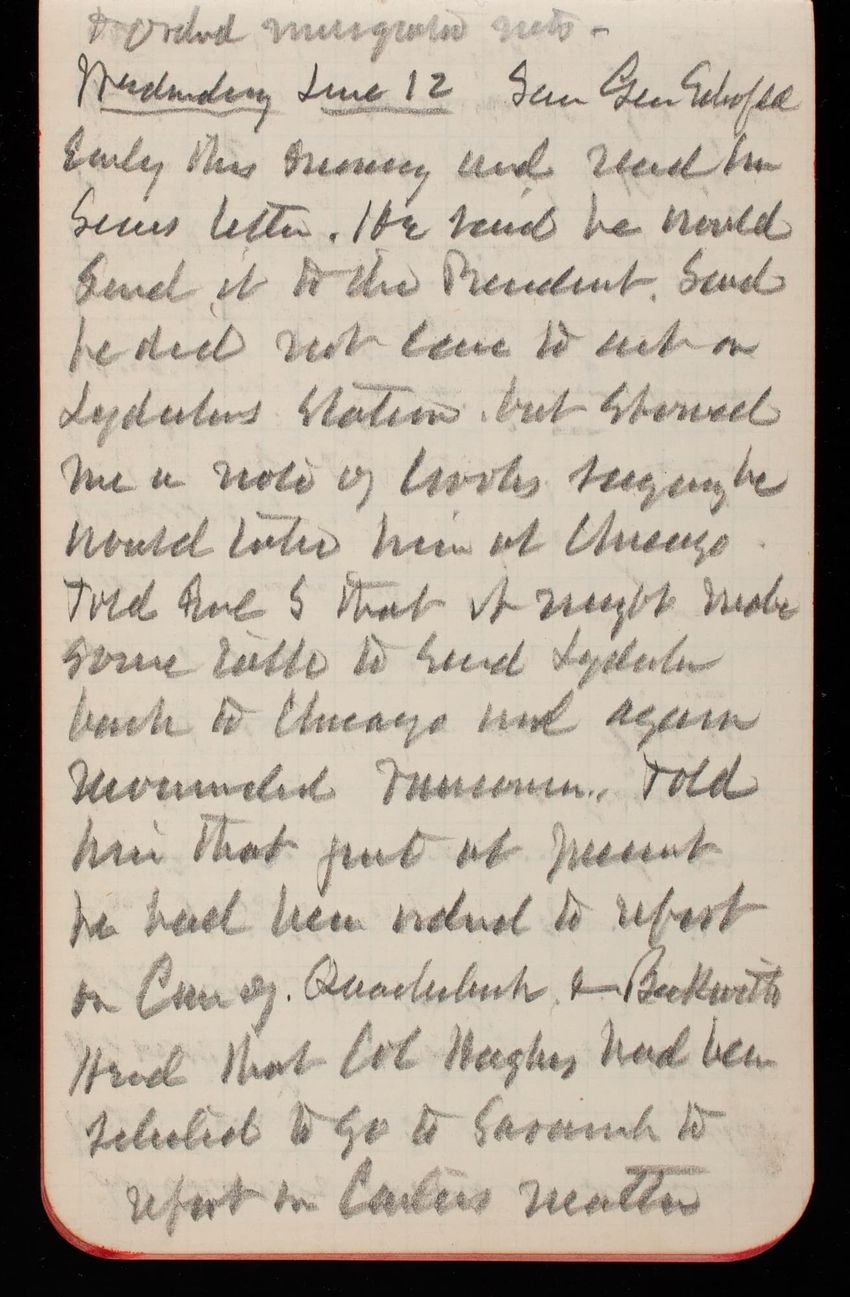 & ordered
Wednesday June 12 Saw Gen Schofield
Early this morning and read him
letter. He said he would
Send it to the President. Said
he did not care to act on
Lydeckers Station. but showed
me a note of saying he
would take him at Chicago
Told Gnl S that it might make
some talk to send Lydecker
back to Chicago and again
Told
him that just at present
he had been ordered to report
on Case of. Quackenbush & Beckwith
Heard that Col Hughes had been
selected to go to Savannah to
report on Carters matter